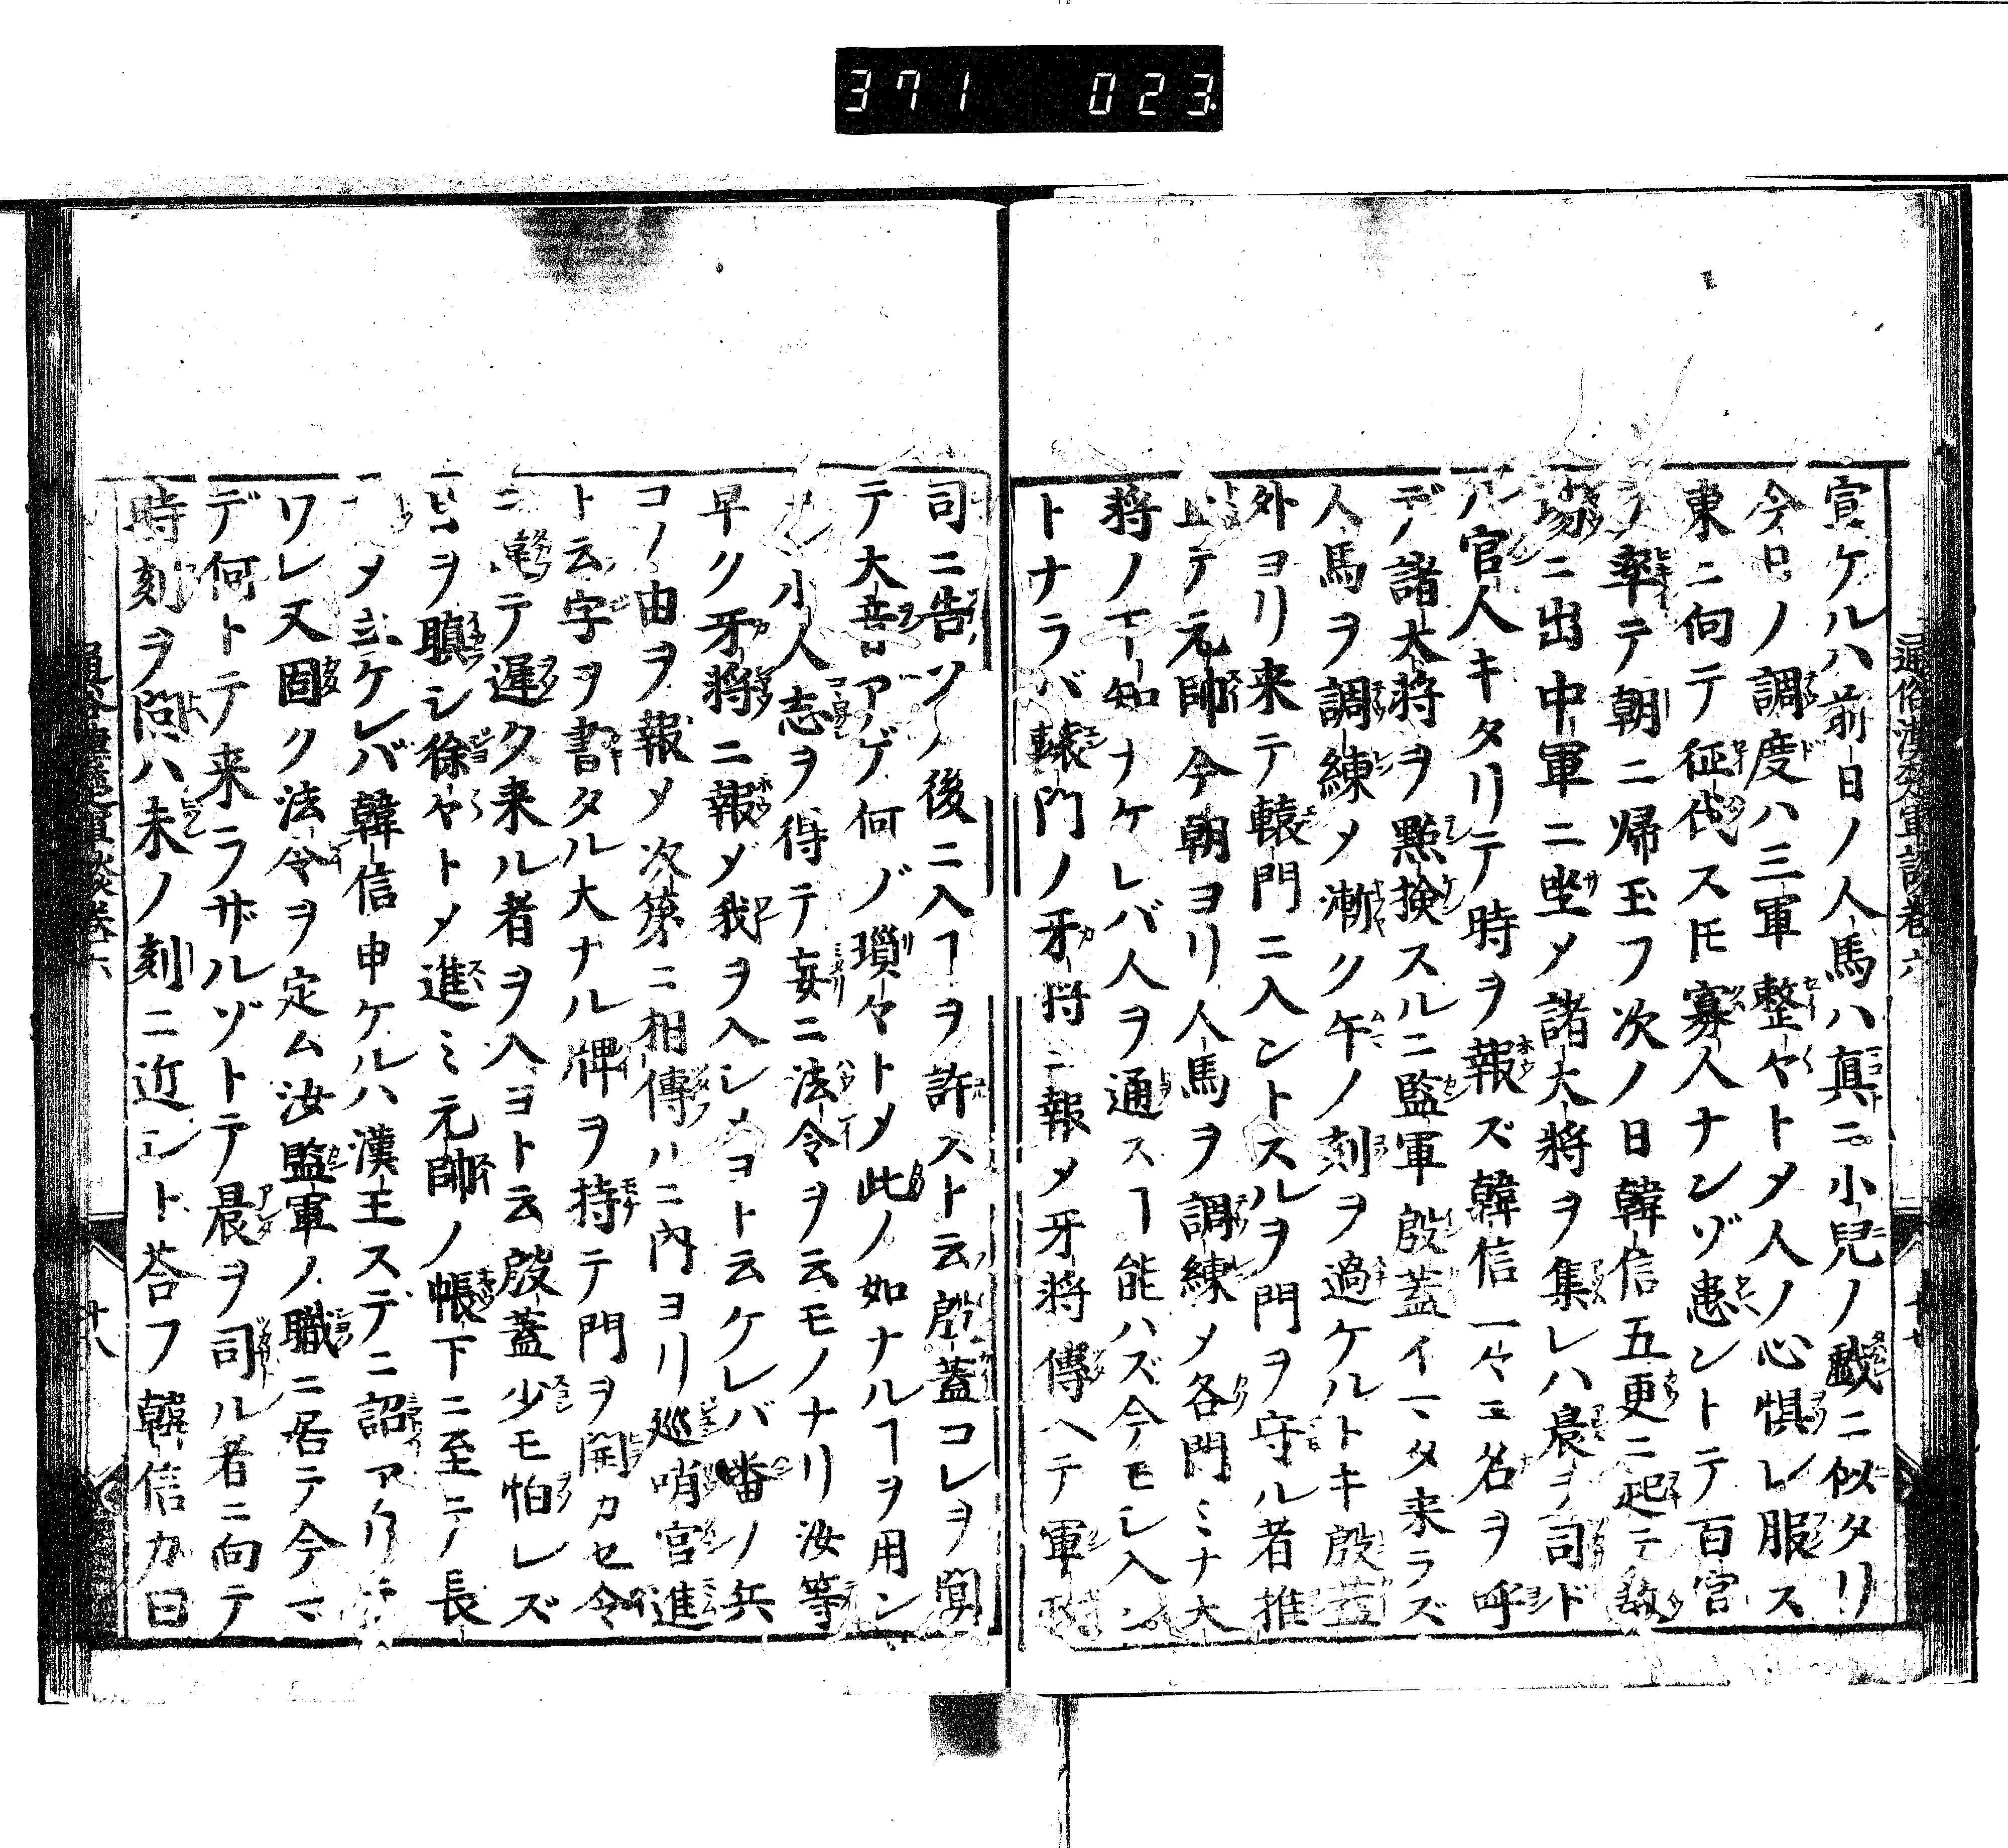 371 023
通俗漢楚軍談巻六
宣ケルハ前日ノ人馬ハ真ニ小兒ノ戯ニ似タリ
今日ノ調度ハ三軍整々トメ人ノ心惧レ服ス
東ニ向テ征伐スㇳモ寡人ナンゾ患ントテ百官
ヲ率テ朝ニ帰玉フ次ノ日韓信五更ニ起テ教
場ニ出中軍ニ坐メ諸大將ヲ集レハ晨ヲ司ド
ル官人キタリテ時ヲ報ズ韓信一々ニ名ヲ呼
デ諸大將ヲ點検スルニ監軍殷蓋イマタ来ラズ
人馬ヲ調練メ漸ク午ノ刻ヲ過ケルトキ殷蓋
外ヨリ来テ轅門ニ入ントスルヲ門ヲ守ル者推
止テ元帥今朝ヨリ人馬ヲ調練メ各門ミナ大
將ノヿ知ナケレバ人ヲ通スヿ能ハズ今モシ入ン
トナラバ轅門ノ牙将ニ報メ牙將傳ヘテ軍政
司ニ告ソノ後ニ入ヿヲ許スト云殷蓋コレヲ聞
テ大音アゲ何ノ瑣々トメ此ノ如ナルヿヲ用ン
小人志ヲ得テ妄ニ法令ヲ云モノナリ汝等
早ク牙將ニ報メ我ヲ入レメヨト云ケレバ番ノ兵
コノ由ヲ報メ次第ニ相傳ハニ内ヨリ巡哨官進
ト云字ヲ書タル大ナル牌ヲ持テ門ヲ開カセ令
ニ テ遲ク来ル者ヲ入ヨト云殷蓋少モ怕レズ
目ヲ瞋シ徐々トメ進ミ元帥ノ帳下ニ至テノ長
メ立ケレバ韓信申ケルハ漢王スデニ詔アリテ
ワレ又固ク法令ヲ定ム汝監軍ノ職ニ居テ今マ
デ何トテ来ラザルゾトテ晨ヲ司ル者ニ向テ
時刻ヲ問ハ未ノ刻ニ近シト荅フ韓信カ曰
漢楚軍談巻六
十八